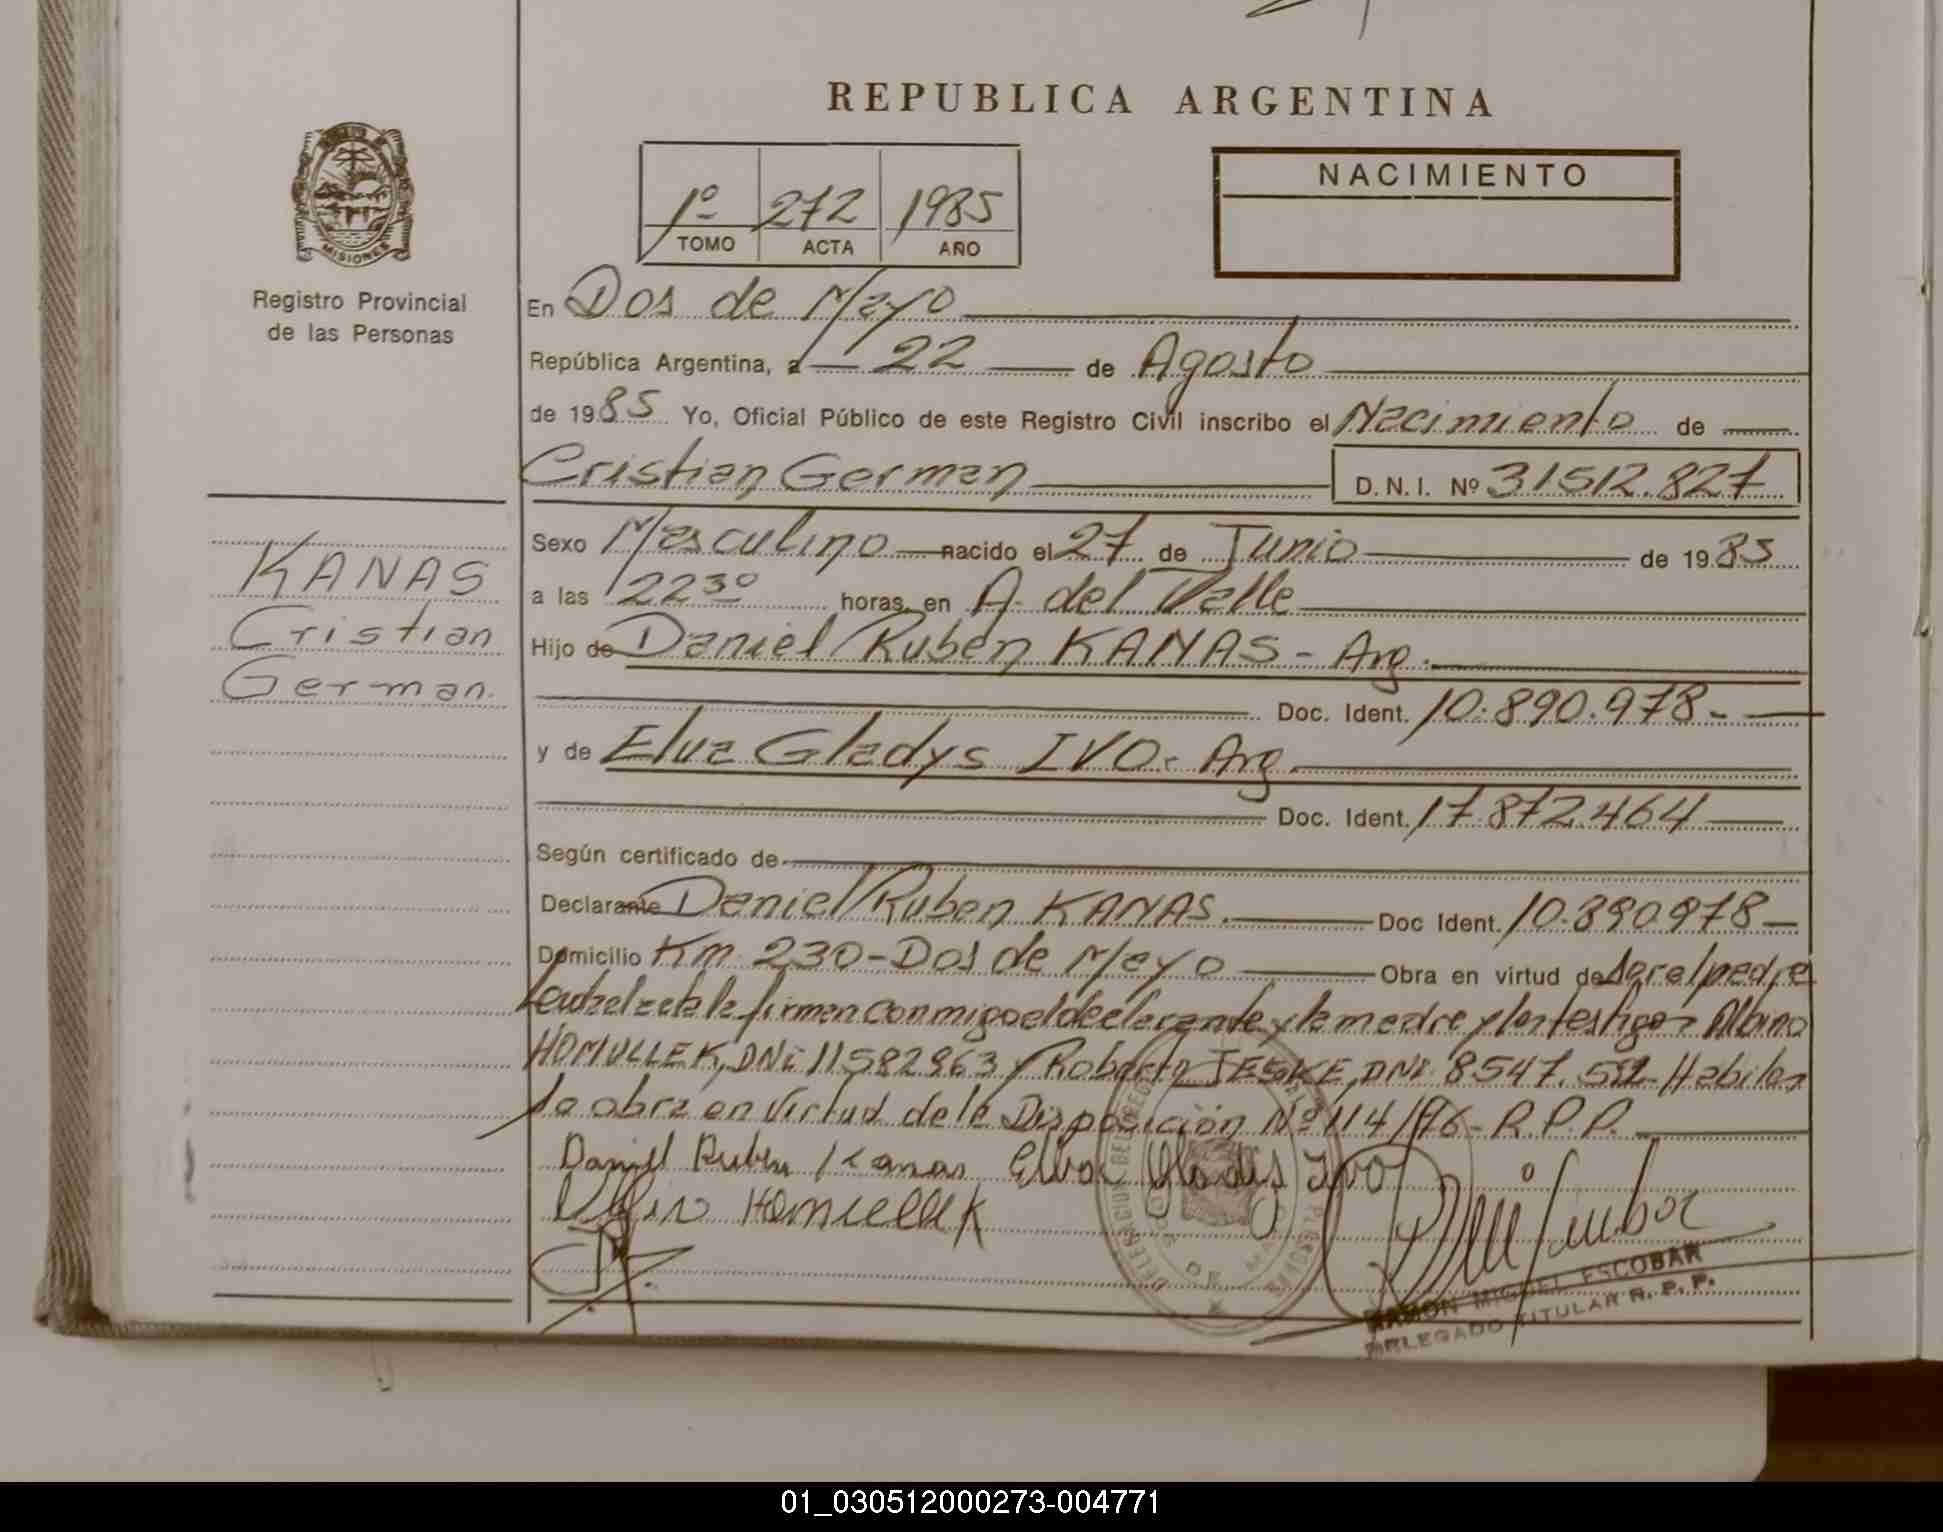 REPUBLICA ARGENTINA
1º 272 1985
TOMO ACTA AÑO
NACIMIENTO
MISIONES
Registro Provincial
de las Personas
En Dos de Mayo
República Argentina, a 22 de Agosto
de 1985 Yo, Oficial Público de este Registro Civil inscribo el Nacimiento de
Cristian German D.N.I. Nº 31512.827
KANAS
Cristian
German.
Sexo Masculino nacido el 27 de Junio de 1985
a las 22 30 horas, en A. del Valle
Hijo de Daniel Ruben KANAS - Arg.
Doc. Ident. 10.890.978-
y de Elva Gladys IVO - Arg.
Doc. Ident. 17.872.464
Según certificado de
Declarante Daniel Ruben KANAS. Doc Ident. 10.890978
Domicilio Km 230-Dos de Mayo Obra en virtud de ser el padre
Leida el acta la firman conmigo el declarante y la madre y los testigos Albino
HOMULLEK, DNI 11582963 y Roberto JESKE, DNI 8547.512 Habiles
Se obra en virtud de la Disposición Nº 114/ R.P.P.
Daniel Ruben Kanas Elva Gladis Ivo
Homullek
DOS DE MAYO
RAMON MIGUEL ESCOBAR
DELEGADO TITULAR R. P. P.
01_030512000273-004771